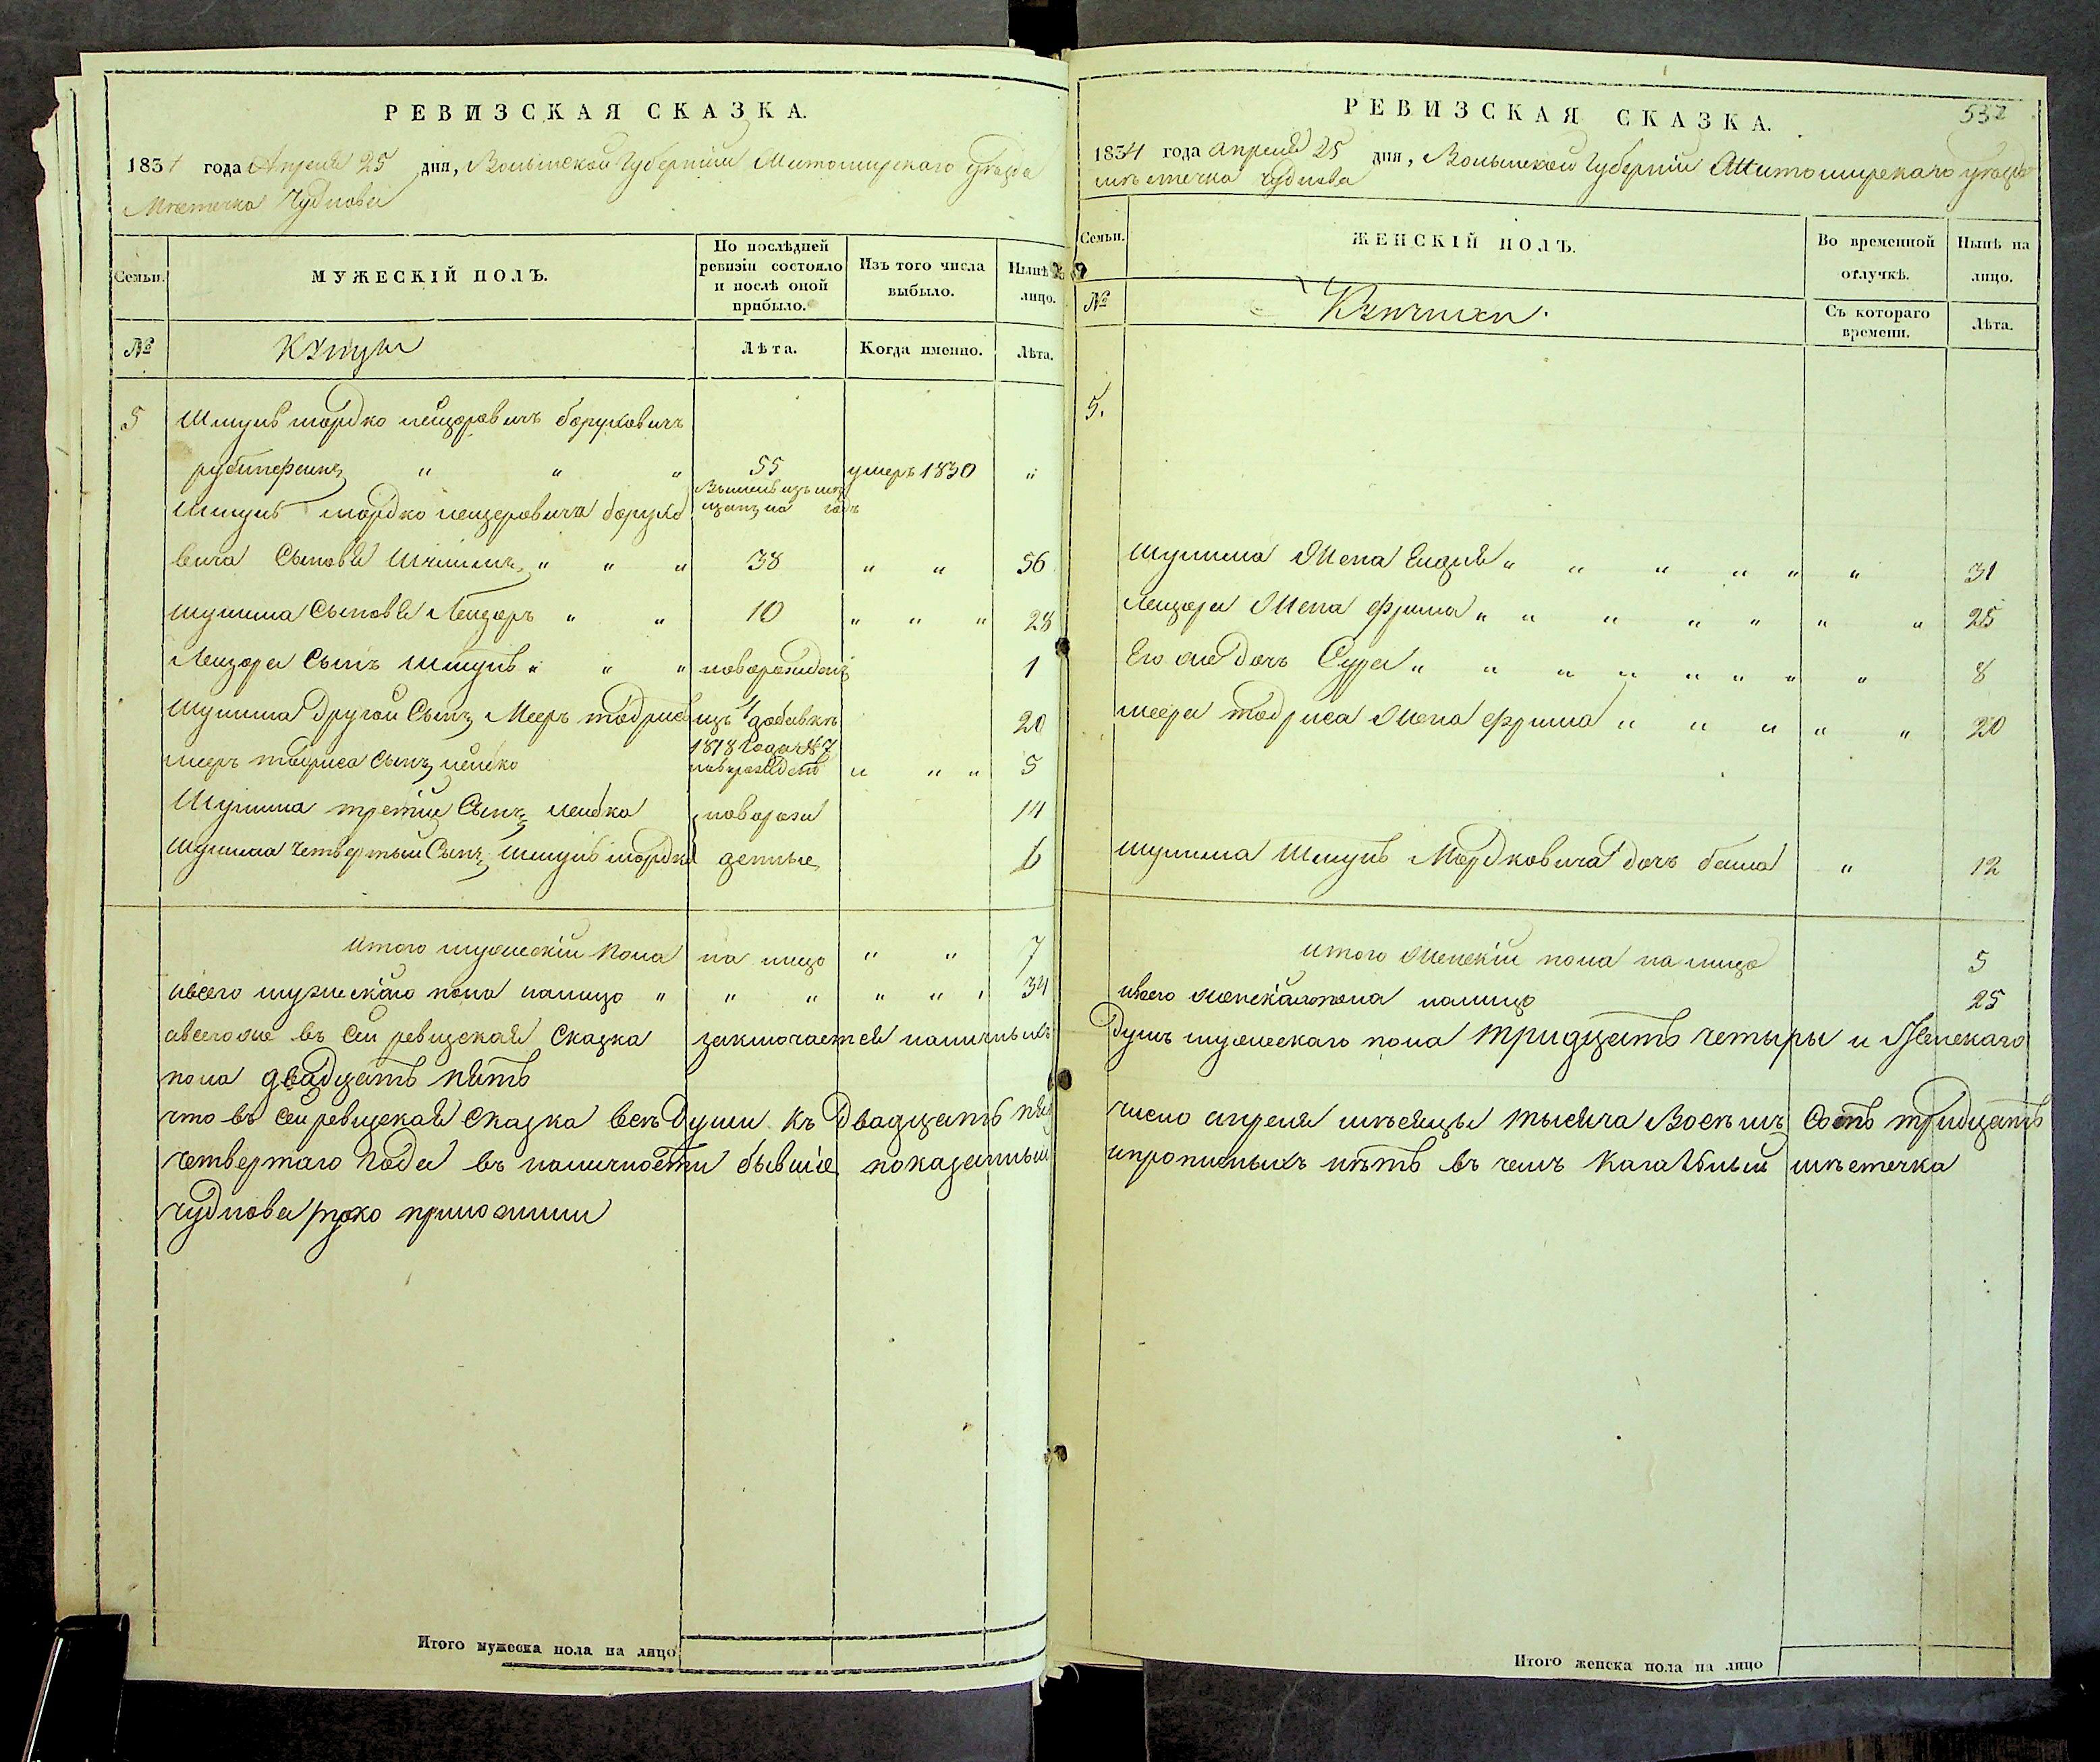 РЕВИЗСКАЯ СКАЗКА.
1834 года Апреля 25 дня, Волынской Губерніи Житомирскаго уѣзда
Мѣстечка Чуднова
Семьи.
МУЖЕСКІЙ ПОЛЪ.
По послѣдней ревизіи состояло и послѣ оной прибыло.
Изъ того числа выбыло.
Нынѣ на лицо.
№
Купцы
Лѣта.
Когда именно.
Лѣта.
5 Шмуль мордко лейзоровичъ боруховичъ
рубинфеинъ " " " 55 умеръ 1830 "
Шмуль мордко лейзеровича борухо
вича Сыновья " " " 38 " " 56
шулима Сыновья Лейзоръ " " 10 " " " 28
Лейзора Сынъ Шмуль " " " новорожденъ 1
Шулима Другой Сынъ Мееръ тодрисъ изъ добавкѣ 20
1818 Года № 7
мееръ тодриса Сынъ лейбко новорожденъ " " " 5
Шулима третій Сынъ лейбко новорож 14
Шулима четвертый Сынъ Шмуль мордко денные 6
итого мужескій пола на лицо " " 7
ивсего мужескаго пола налицо " " " " " " 34
авсего же въ сей ревизская Сказка заключается наличныхъ
пола двадцать пять
что въ сей ревизская сказка всѣ Души къ Двадцать пят
четвертаго Года въ наличности бывшіе показанныи
чудновы руко приложили
Итого мужеска пола на лицо
РЕВИЗСКАЯ СКАЗКА.
532
1834 года апреля 25 дня, Волынской Губерніи Житомирскаго уѣзда
мѣстечка чуднова
Семьи.
ЖЕНСКІЙ ПОЛЪ.
Во временной отлучкѣ.
Нынѣ на лицо.
№
Съ котораго времени.
Лѣта.
5.
Шулима Жена " " " " " " 31
Лейзора Жена фрима " " " " " " " 25
Его же дочь Сура " " " " " " " " 8
меера тодриса Жена фрима " " " " " 20
шулима Шмуль Мордковича дочь баша " 12
итого женскій пола налицо 5
ивсего женскаго пола налицо 25
Душъ мужескаго пола тридцать четыры и Женскаго
число апреля мѣсяцы тысяча Восѣмъ Сотъ тридцать
ипрописныхъ нѣтъ въ чемъ Кагальный мѣстечка
Итого женска пола на лицо